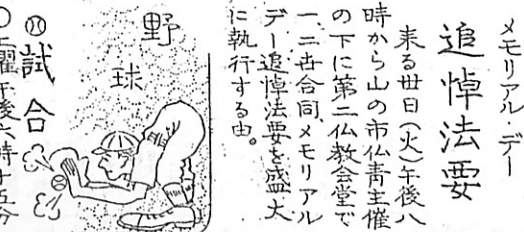 メモリアル・デー
追悼法要
来る卅日(火)午後八
時から山の市仏青主催
の下に第二仏教会堂で
一、二世合同、メモリアル
デー追悼法要を盛大
に執行する由。
野球
試合
土曜午後六時十五分